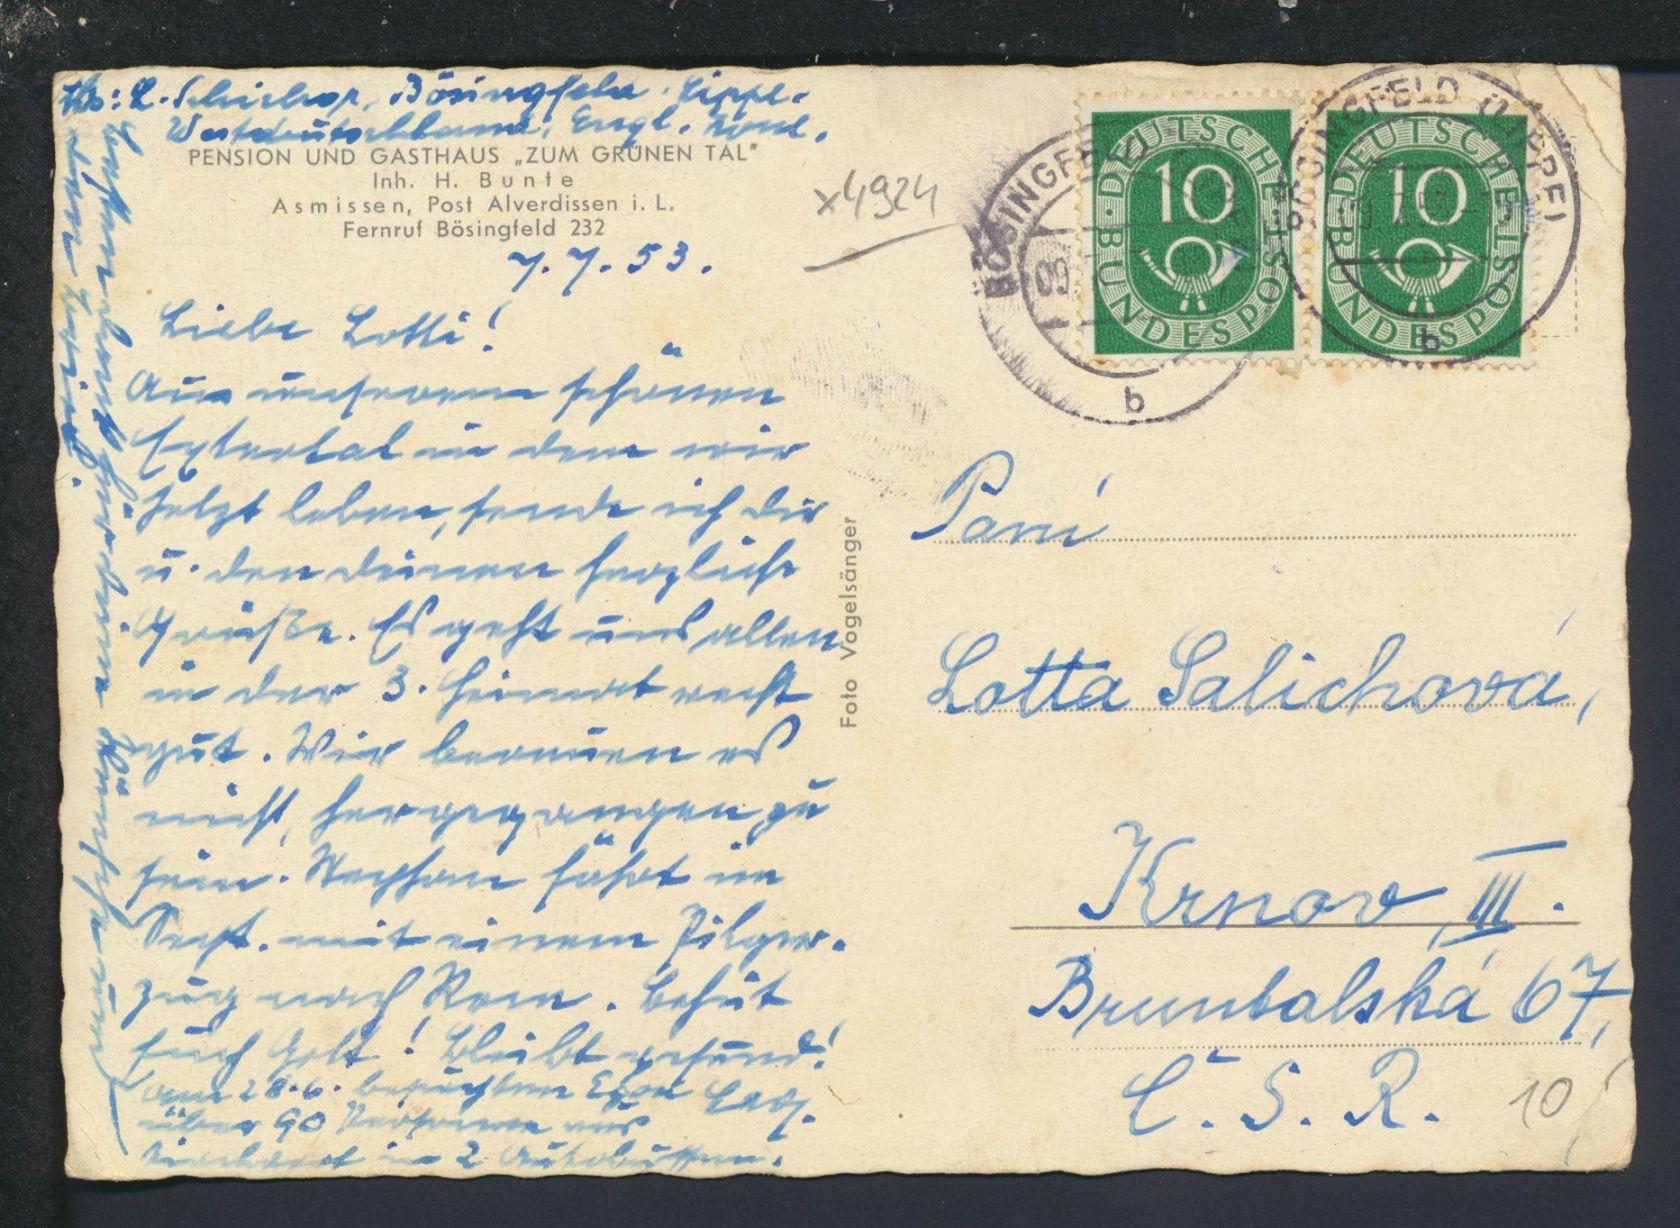 Schischor, Bösingfeld, Lippe.
Westdeutschland, Engl. Zone.
PENSION UND GASTHAUS „ZUM GRÜNEN TAL"
Inh. H. Bunte
Asmissen, Post Alverdissen i. L.
Fernruf Bösingfeld 232
x4924
7.7.53.
Liebe Lotti!
Aus unserem schönen
Extertal in dem wir
jetzt leben, sende ich dir
u. den deinen herzliche
Grüße. Es geht uns allen
in der 3. Heimat recht
gut. Wir bereuen es
nicht, hergegangen zu
sein. fährt im
Sept. mit einem Pilger-
zug nach Rom. Behüt
Euch Gott! Bleibt gesund!
am 28.6. besuchten
über 90 Personen aus
in 2 Autobussen.
Foto Vogelsänger
BÖSINGFELD
09
b
BÖSINGFELD (LIPPE)
b
DEUTSCHE BUNDESPOST
10
DEUTSCHE BUNDESPOST
10
Paní
Lotta Salichová,
Krnov, III.
Bruntalská 67,
Č.S.R.
10